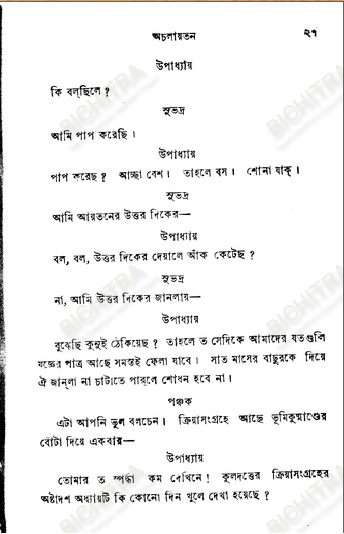 অচলায়তন ২৭
উপাধ্যায়
কি বল্‌ছিলে ?
সুভদ্র
আমি পাপ করেছি ।
উপাধ্যায়
পাপ করেছ ? আচ্ছা বেশ । তাহলে বস । শোনা যাক্ ।
সুভদ্র
আমি আয়তনের উত্তর দিকের—
উপাধ্যায়
বল, বল, উত্তর দিকের দেয়ালে আঁক কেটেছ ?
সুভদ্র
না, আমি উত্তর দিকের জানলায়—
উপাধ্যায়
বুঝেছি কুনুই ঠেকিয়েছ ? তাহলে ত সেদিকে আমাদের যতগুলি
যজ্ঞের পাত্র আছে সমস্তই ফেলা যাবে । সাত মাসের বাছুরকে দিয়ে
ঐ জান্‌লা না চাটাতে পার্‌লে শোধন হবে না ।
পঞ্চক
এটা আপনি ভুল বলচেন । ক্রিয়াসংগ্রহে আছে ভূমিকুষ্মাণ্ডের
বোঁটা দিয়ে একবার—
উপাধ্যায়
তোমার ত স্পর্দ্ধা কম দেখিনে ! কুলদত্তের ক্রিয়াসংগ্রহের
অষ্টাদশ অধ্যায়টি কি কোনো দিন খুলে দেখা হয়েছে ?
BICHITRA